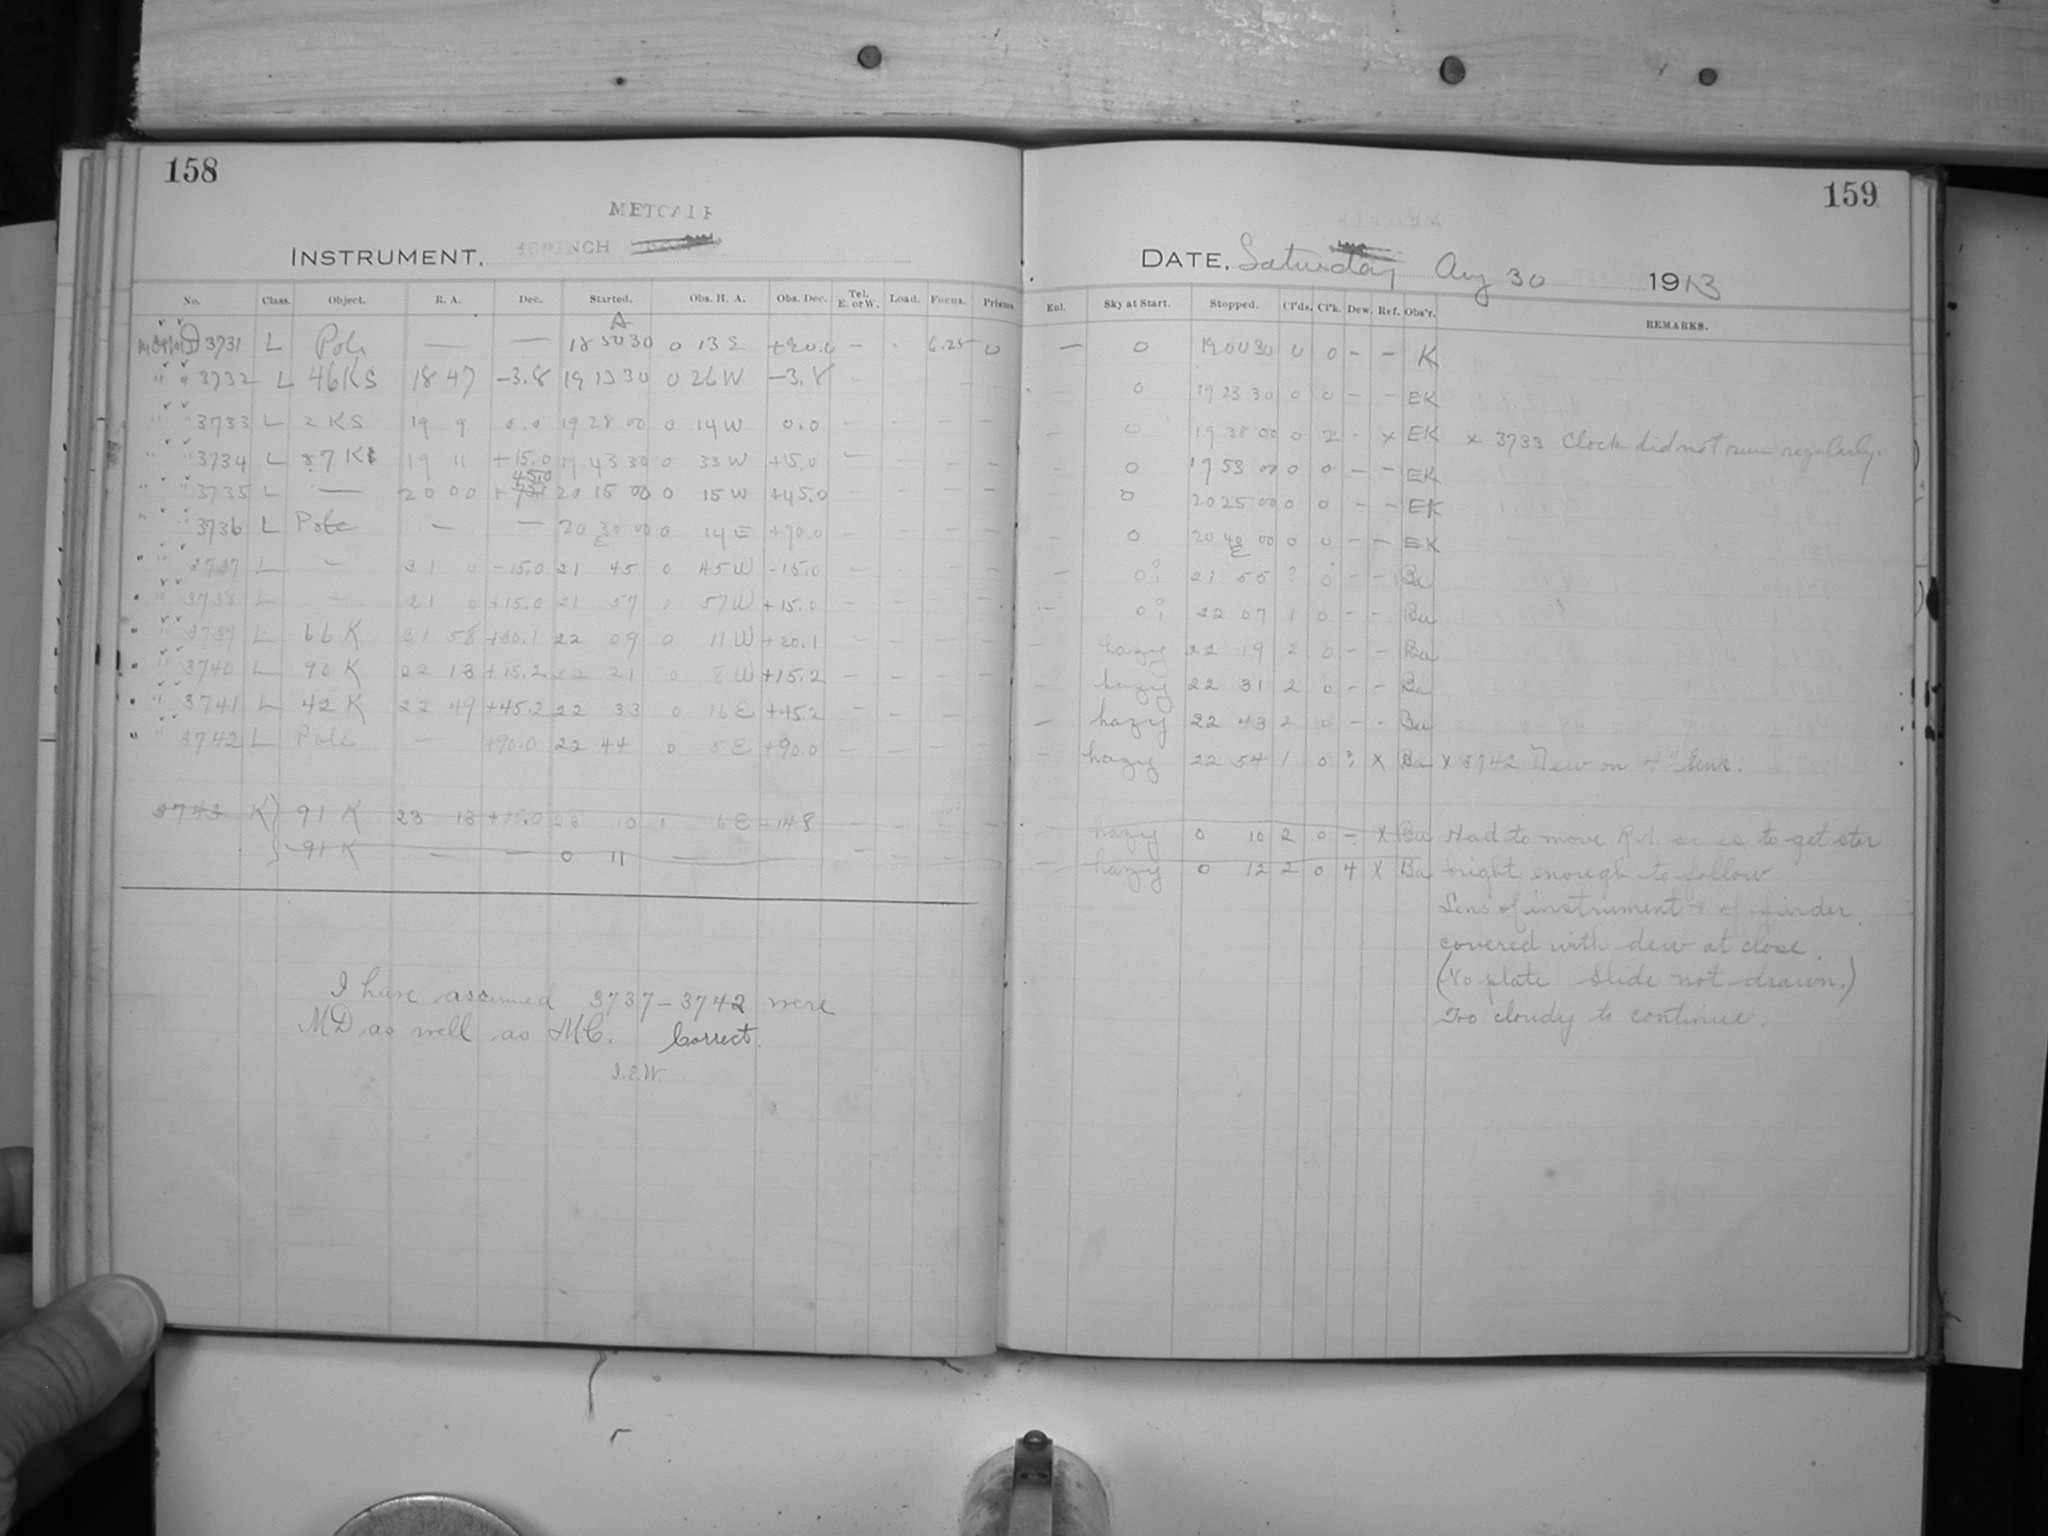 158
METCALF
INSTRUMENT. 16 INCH
No. Class. Object. R. A. Dec. Started. Obs. H. A. Obs. Dec. Tel. E. or W. Load. Focus. Prisms.
A
3731 L Pole — — 18 50 30 0 13 E +90.0 — 6.25 0
" " 3732 L 46 KS 18 47 −3.8 19 13 30 0 26 W −3.8 —
" " 3733 L 2 KS 19 9 0.0 19 28 00 0 19 W 0.0 — — — —
" " 3734 L 87 KS 19 11 +15.0 19 43 30 0 33 W +15.0 — — — —
45.0
" " 3735 L — 20 00 + 20 15 00 0 15 W +45.0 — — — —
" " 3736 L Pole — — 20 30 00 0 14 E +90.0 — — — —
" " 3737 L — 21 0 −15.0 21 45 0 45 W −15.0 — — — —
" " 3738 L — 21 0 +15.0 21 57 0 57 W +15.0 — — — —
" " 3739 L 66 K 21 58 +30.1 22 09 0 11 W +30.1 — — — —
" " 3740 L 90 K 22 13 +15.2 22 21 0 8 W +15.2 — — — —
" " 3741 L 42 K 22 49 +45.2 22 33 0 16 E +45.2 — — — —
" " 3742 L Pole — +90.0 22 44 0 5 E +90.0 — — — —
3743 K 91 K 23 13 +15.0 23 10 0 6 E +14.8 — — — —
91 K — — 0 11 — — — — —
I have assumed 3737 – 3742 were
MD as well as MC. Correct.
I.E.W.
159
DATE. Saturday Aug 30 1913
Eul. Sky at Start. Stopped. Cl'ds. Cl'k. Dew. Ref. Obs'r. REMARKS.
— 0 19 00 30 0 0 – – K
— 0 19 23 30 0 0 – – EK
— 0 19 38 00 0 2 - x EK x 3733 Clock did not run regularly.
— 0 19 53 00 0 0 – – EK
— 0 20 25 00 0 0 – – EK
— 0 20 48 00 0 0 – – EK
— 0? 21 55 ? 0 – – Ba
— 0? 22 07 1 0 – – Ba
— hazy 22 19 2 0 – – Ba
— hazy 22 31 2 0 – – Ba
— hazy 22 43 2 0 – – Ba
— hazy 22 54 1 0 ? x Ba x 3742 Dew on 4" lens.
— hazy 0 10 2 0 – x Ba Had to move R.A. so as to get star
— hazy 0 12 2 0 4 x Ba bright enough to follow
Lens of instrument & of finder
covered with dew at close.
(No plate Slide not drawn.)
Too cloudy to continue.